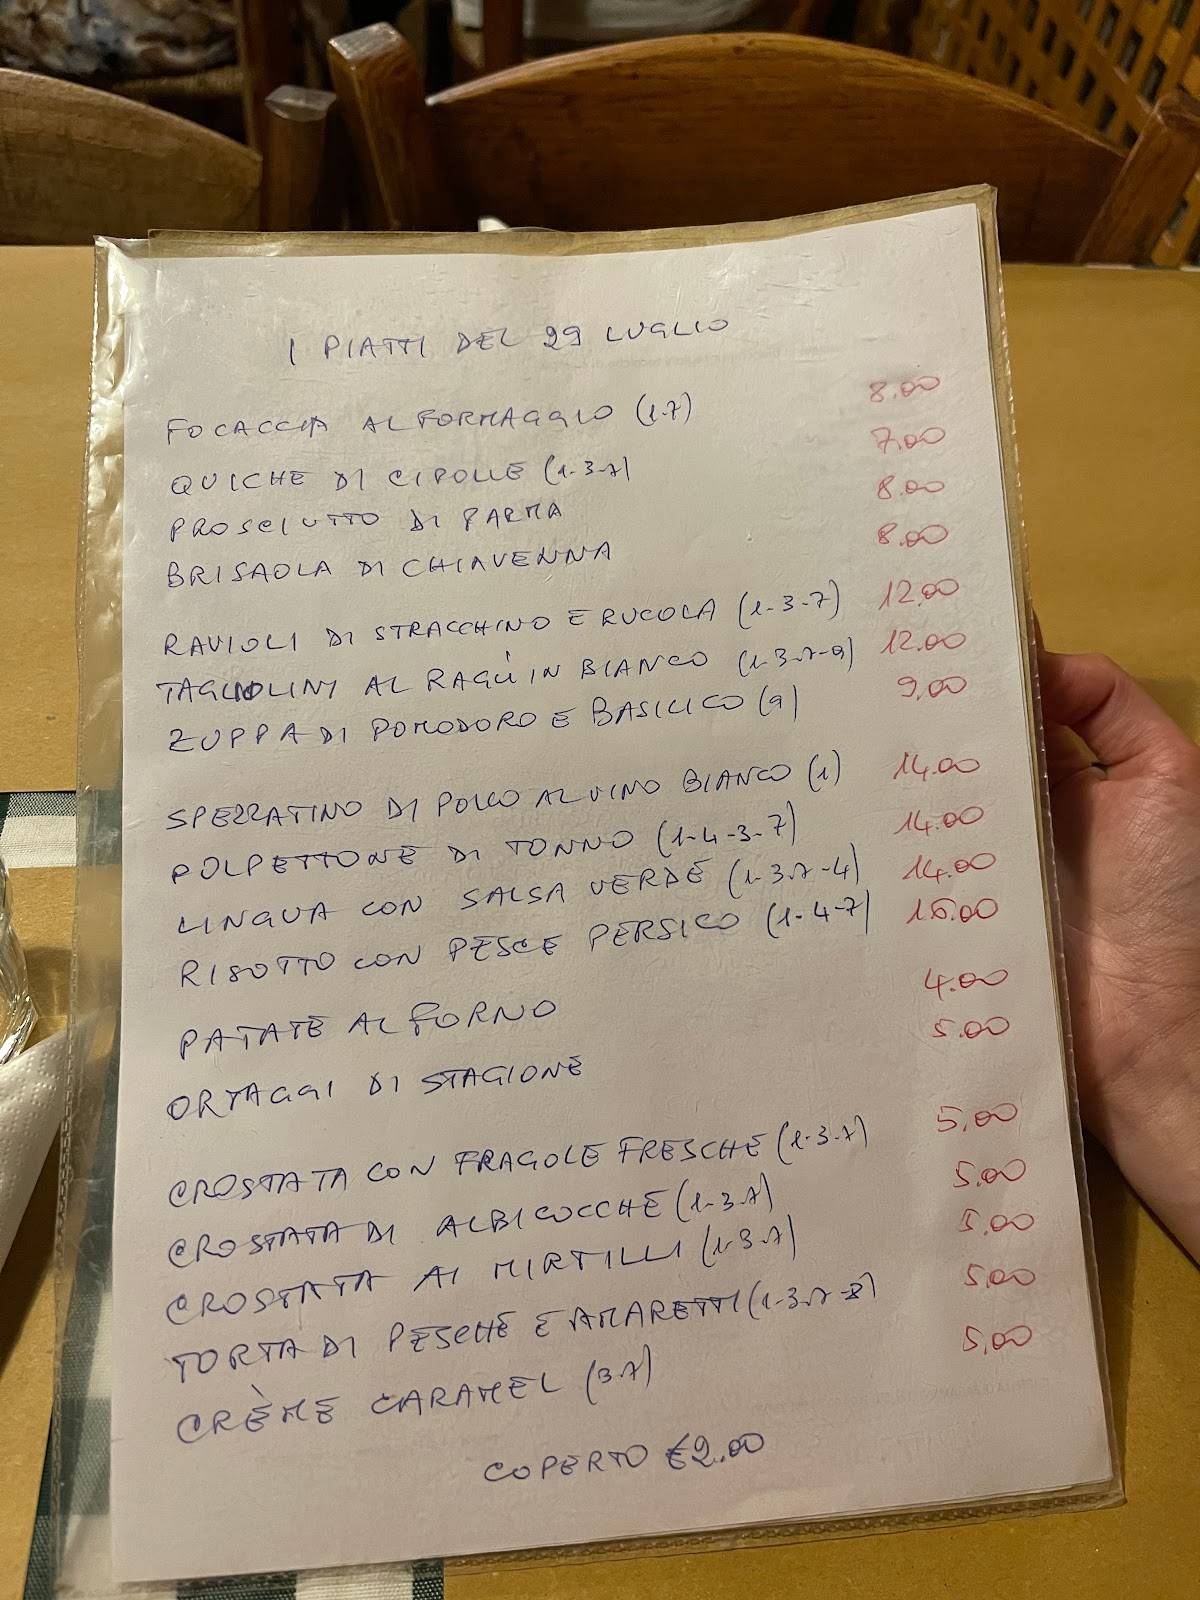 I PIATTI DEL 29 LUGLIO
FOCACCIA AL FORMAGGIO (1-7) 8.00
QUICHE DI CIPOLLE (1-3-7) 7,00
PROSCIUTTO DI PARMA 8.00
BRISAOLA DI CHIAVENNA 8.00
RAVIOLI DI STRACCHINO E RUCOLA (1-3-7) 12.00
TAGLIOLINI AL RAGÙ IN BIANCO (1-3-7-9) 12.00
ZUPPA DI POMODORO E BASILICO (9) 9,00
SPEZZATINO DI POLLO AL VINO BIANCO (1) 14.00
POLPETTONE DI TONNO (1-4-3-7) 14.00
LINGUA CON SALSA VERDE (1-3-7-4) 14.00
RISOTTO CON PESCE PERSICO (1-4-7)
PATATE AL FORNO 4.00
ORTAGGI DI STAGIONE 5.00
CROSTATA CON FRAGOLE FRESCHE (1-3-7) 5,00
CROSTATA DI ALBICOCCHE (1-3-7) 5.00
CROSTATA AI MIRTILLI (1-3-7) 5.00
TORTA DI PESCHE E AMARETTI (1-3-7-8) 5,00
CRÈME CARAMEL (3-7) 5,00
COPERTO €2.00